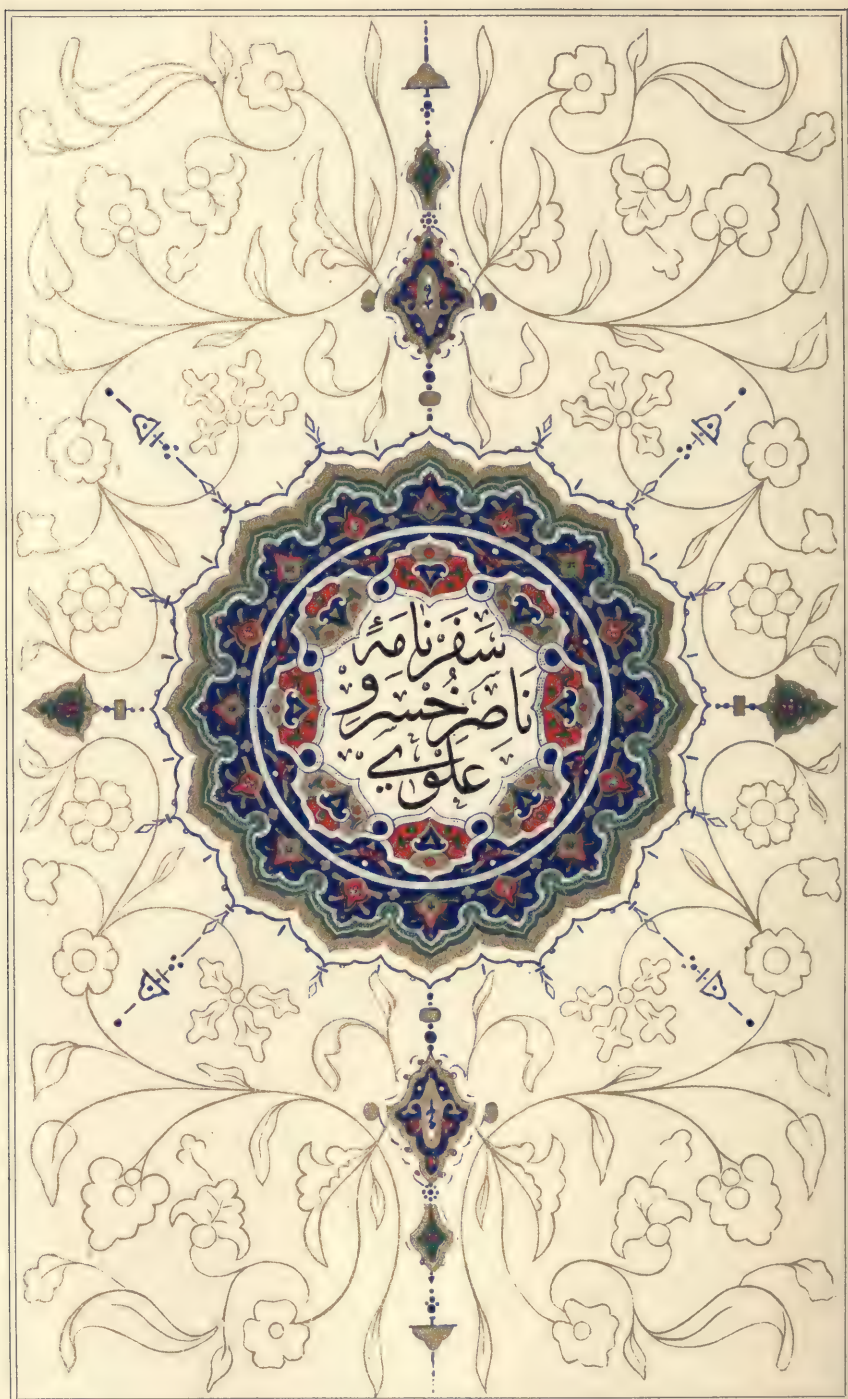 سَفَرنامَهٔ
نَاصِر خُسرو
عَلَوي